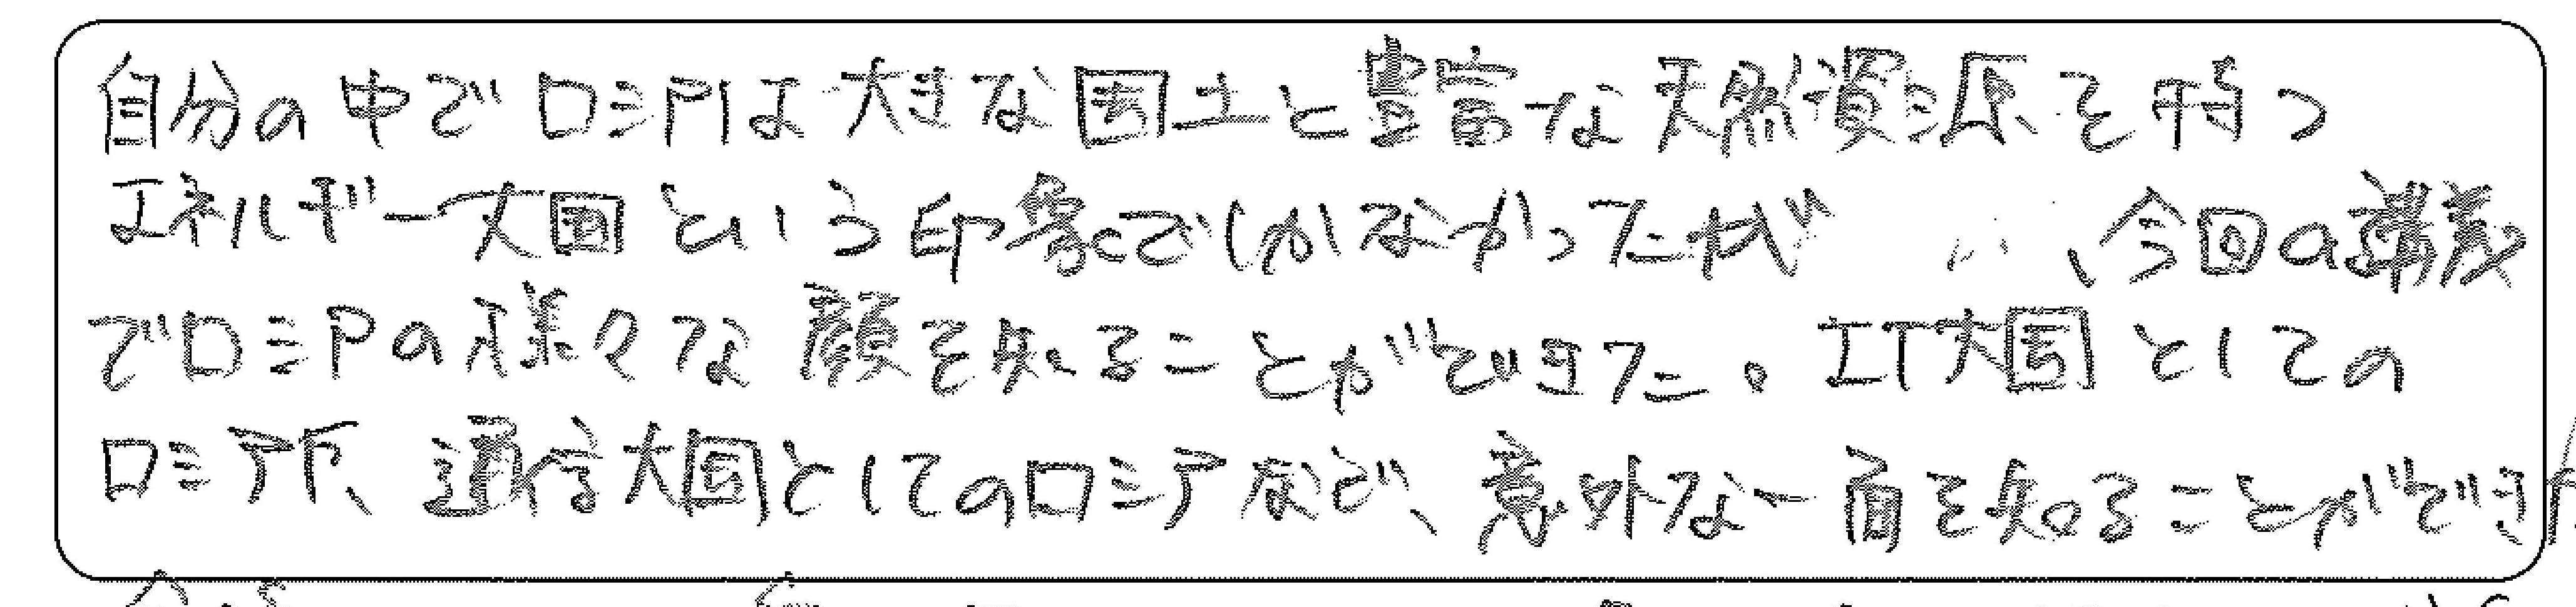 自分の中でロシアは大きな国土と豊富な天然資源を持つ
エネルギー大国という印象でしかなかったが、今回の講義
でロシアの様々な顔を知ることができた。IT大国としての
ロシア、通信大国としてのロシアなど、意外な一面を知ることができ